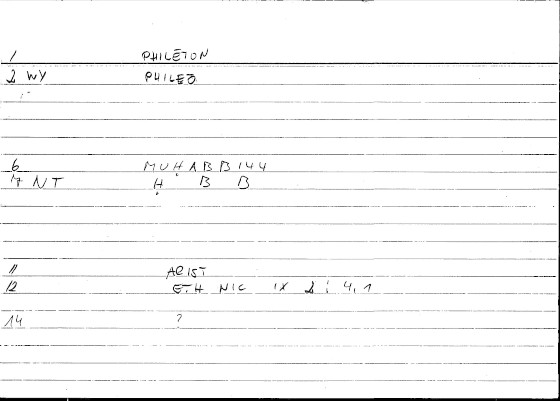 1 PHILĒTON
2 WY PHILEB
6 MUḤABB144
7 NT Ḥ B B
11 ARIST
12 ETH NIC IX 2 : 4,1
14 ?